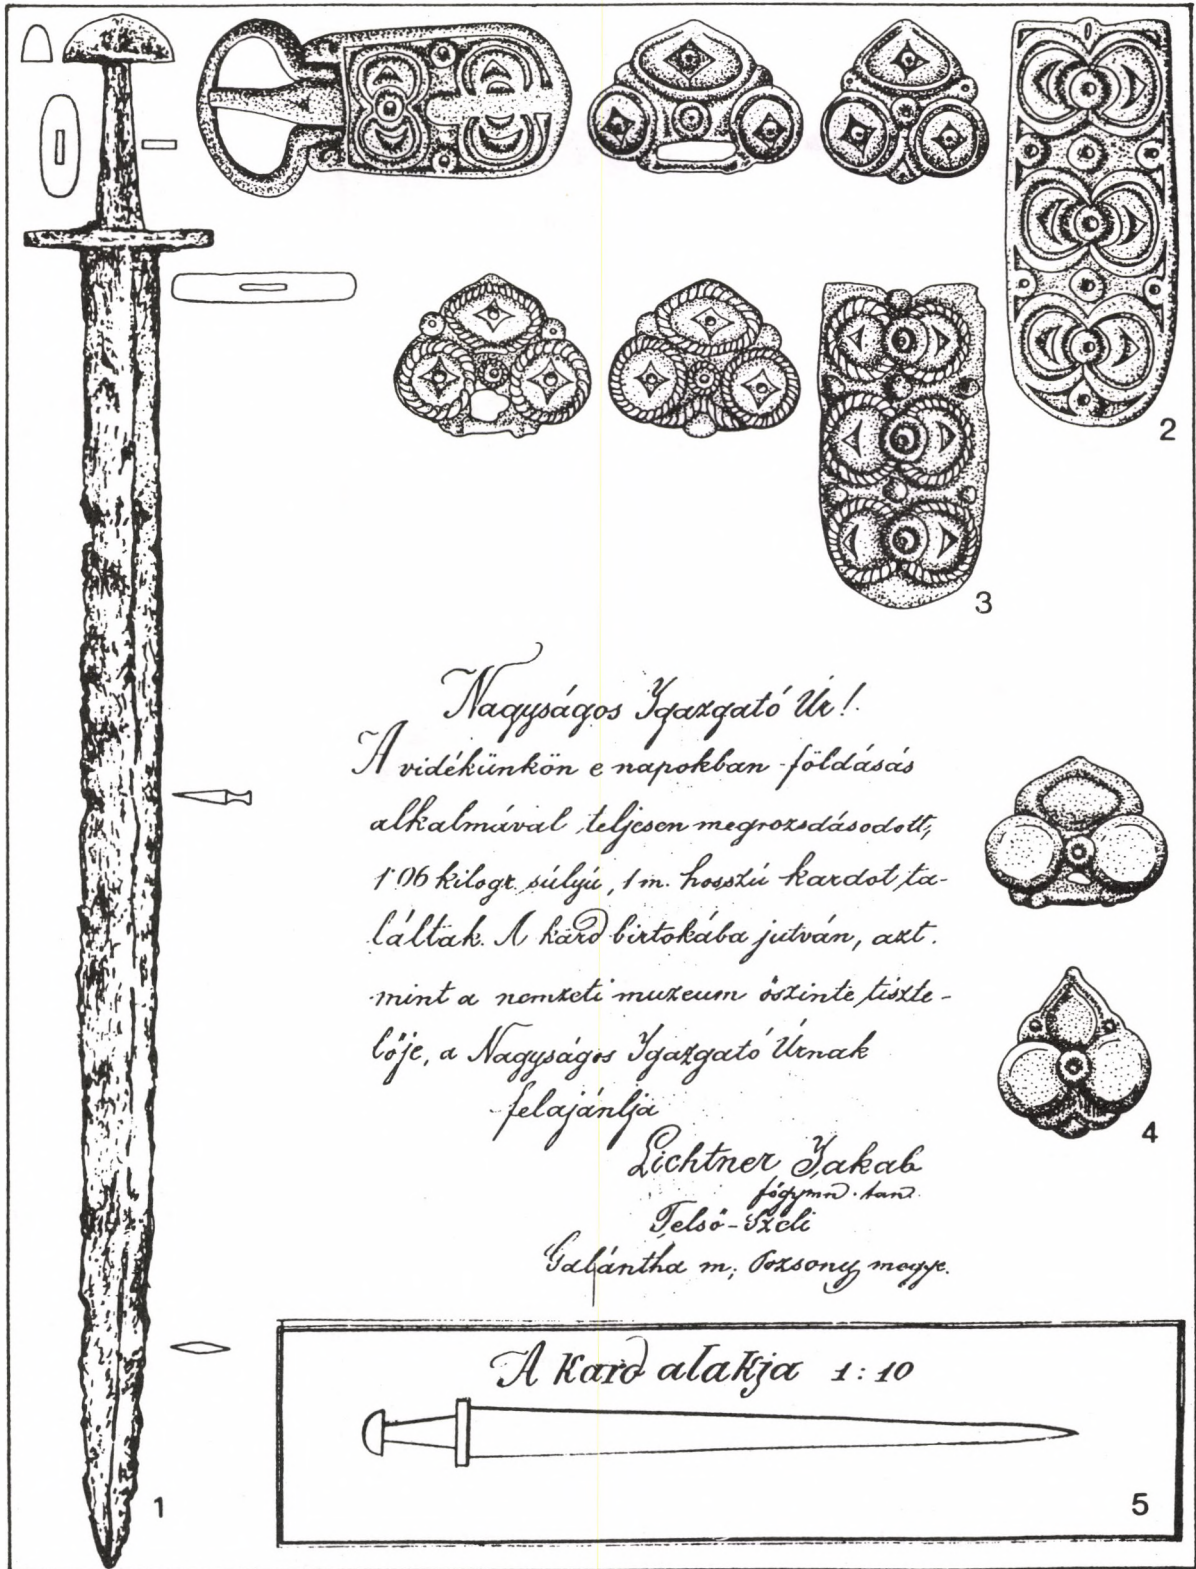 2
3
Nagyságos Igazgató Úr!
A vidékünkön e napokban földásás
alkalmával teljesen megrozsdásodott,
1·06 kilogr. súlyú, 1 m. hosszú kardot ta-
láltak. A kard birtokába jutván, azt
mint a nemzeti muzeum őszinte tiszte-
lője, a Nagyságos Igazgató Úrnak
felajánlja
4
Lichtner Jakab
főgymn. tan.
Felső-Szeli
Galántha m; Pozsony megye.
A kard alakja 1:10
1
5